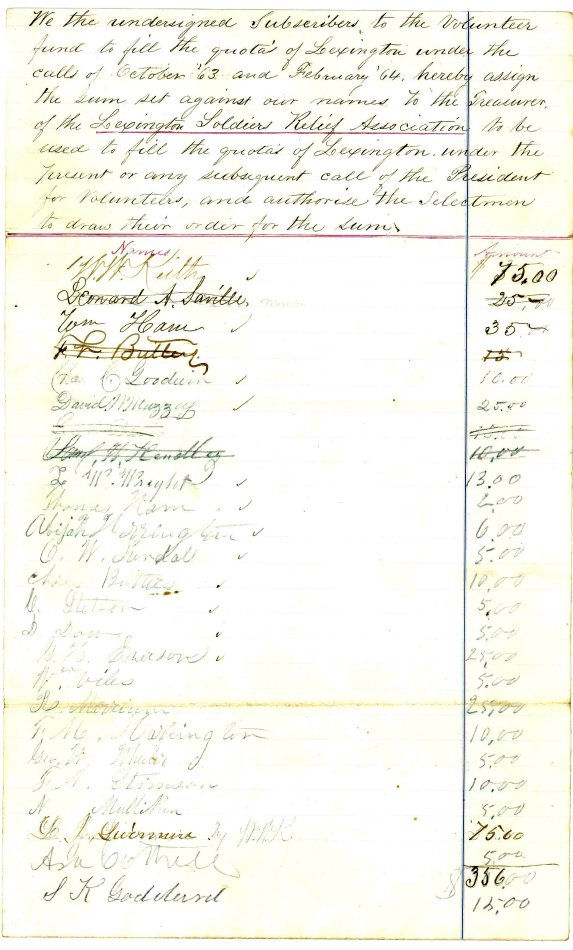 We the undersigned Subscribers to the Volunteer
fund to fill the quota's of Lexington under the
calls of October '63 and February '64, hereby assign
the sum set against our names to the Treasurer,
of the Lexington Soldiers Relief Association to be
used to fill the quotas of Lexington under the
present or any subsequent call of the President
for Volunteers, and authorise the Selectmen
to draw their order for the sum.
Names Amount
W. W. Keith $75.00
Leonard A. Saville 25.00
Wm Ham 35
15
Goodwin 10.00
David W Muzzey 25.00
15.00
Saml W Kendall 10.00
L. W. Wright 13.00
Thomas Ham 2.00
Abijah Harrington 6.00
C. W. Kendall 5.00
Butters 10.00
Stetson 5.00
D. 5.00
Emerson 25.00
Wm Viles 5.00
Merriam 25.00
Harrington 10.00
Geo. W. 5.00
Stimson 10.00
N Mulliken 5.00
L. J. Livermore by W.W.K. 75.00
Asa Cottrell 5.00
$ 356.00
S K Goddard 15.00